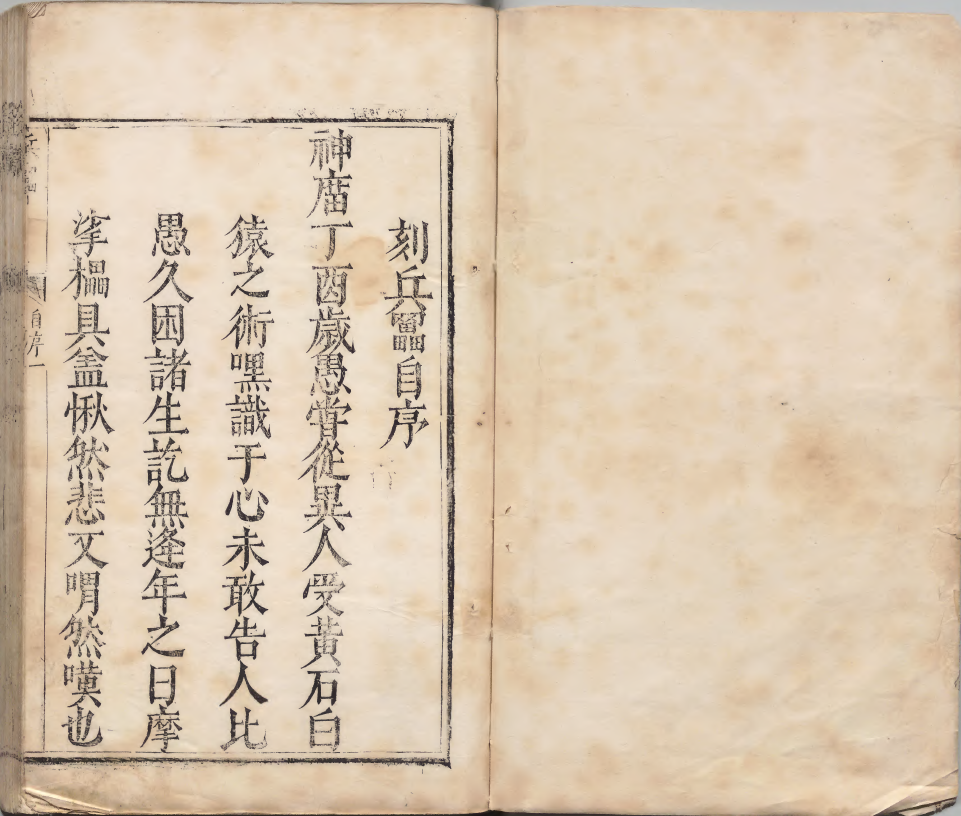 刻兵罍自序
神庿丁酉歲愚甞從異人受黃石白
猿之術嘿識于心未敢告人比
愚久困諸生訖無逢年之日摩
挲櫑具盖愀然悲又喟然嘆也
自序 一